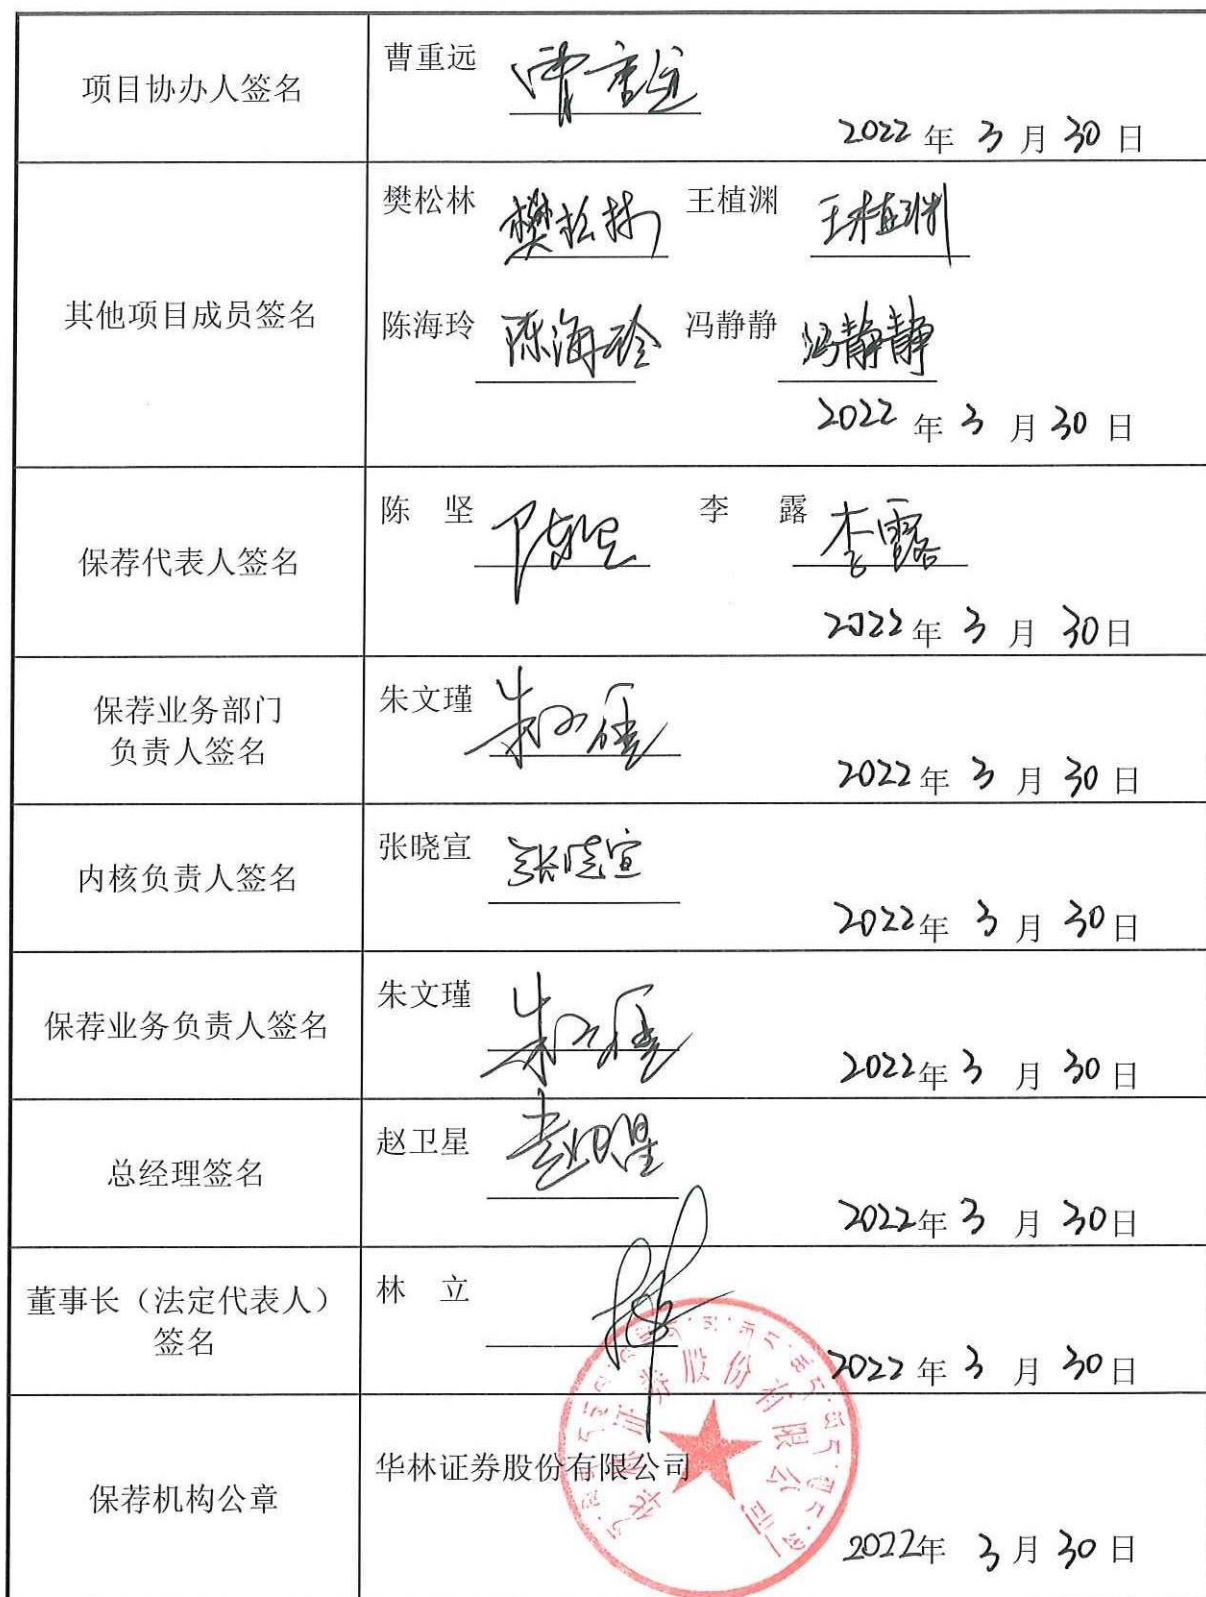 项目协办人签名
曹重远 曹重远
2022年3月30日
其他项目成员签名
樊松林 樊松林 王植渊 王植渊
陈海玲 陈海玲 冯静静 冯静静
2022年3月30日
保荐代表人签名
陈 坚 陈坚 李 露 李露
2022年3月30日
保荐业务部门
负责人签名
朱文瑾 朱文瑾
2022年3月30日
内核负责人签名
张晓宣 张晓宣
2022年3月30日
保荐业务负责人签名
朱文瑾 朱文瑾
2022年3月30日
总经理签名
赵卫星 赵卫星
2022年3月30日
董事长（法定代表人）
签名
林 立
2022年3月30日
保荐机构公章
华林证券股份有限公司
华林证券股份有限公司
2022年3月30日